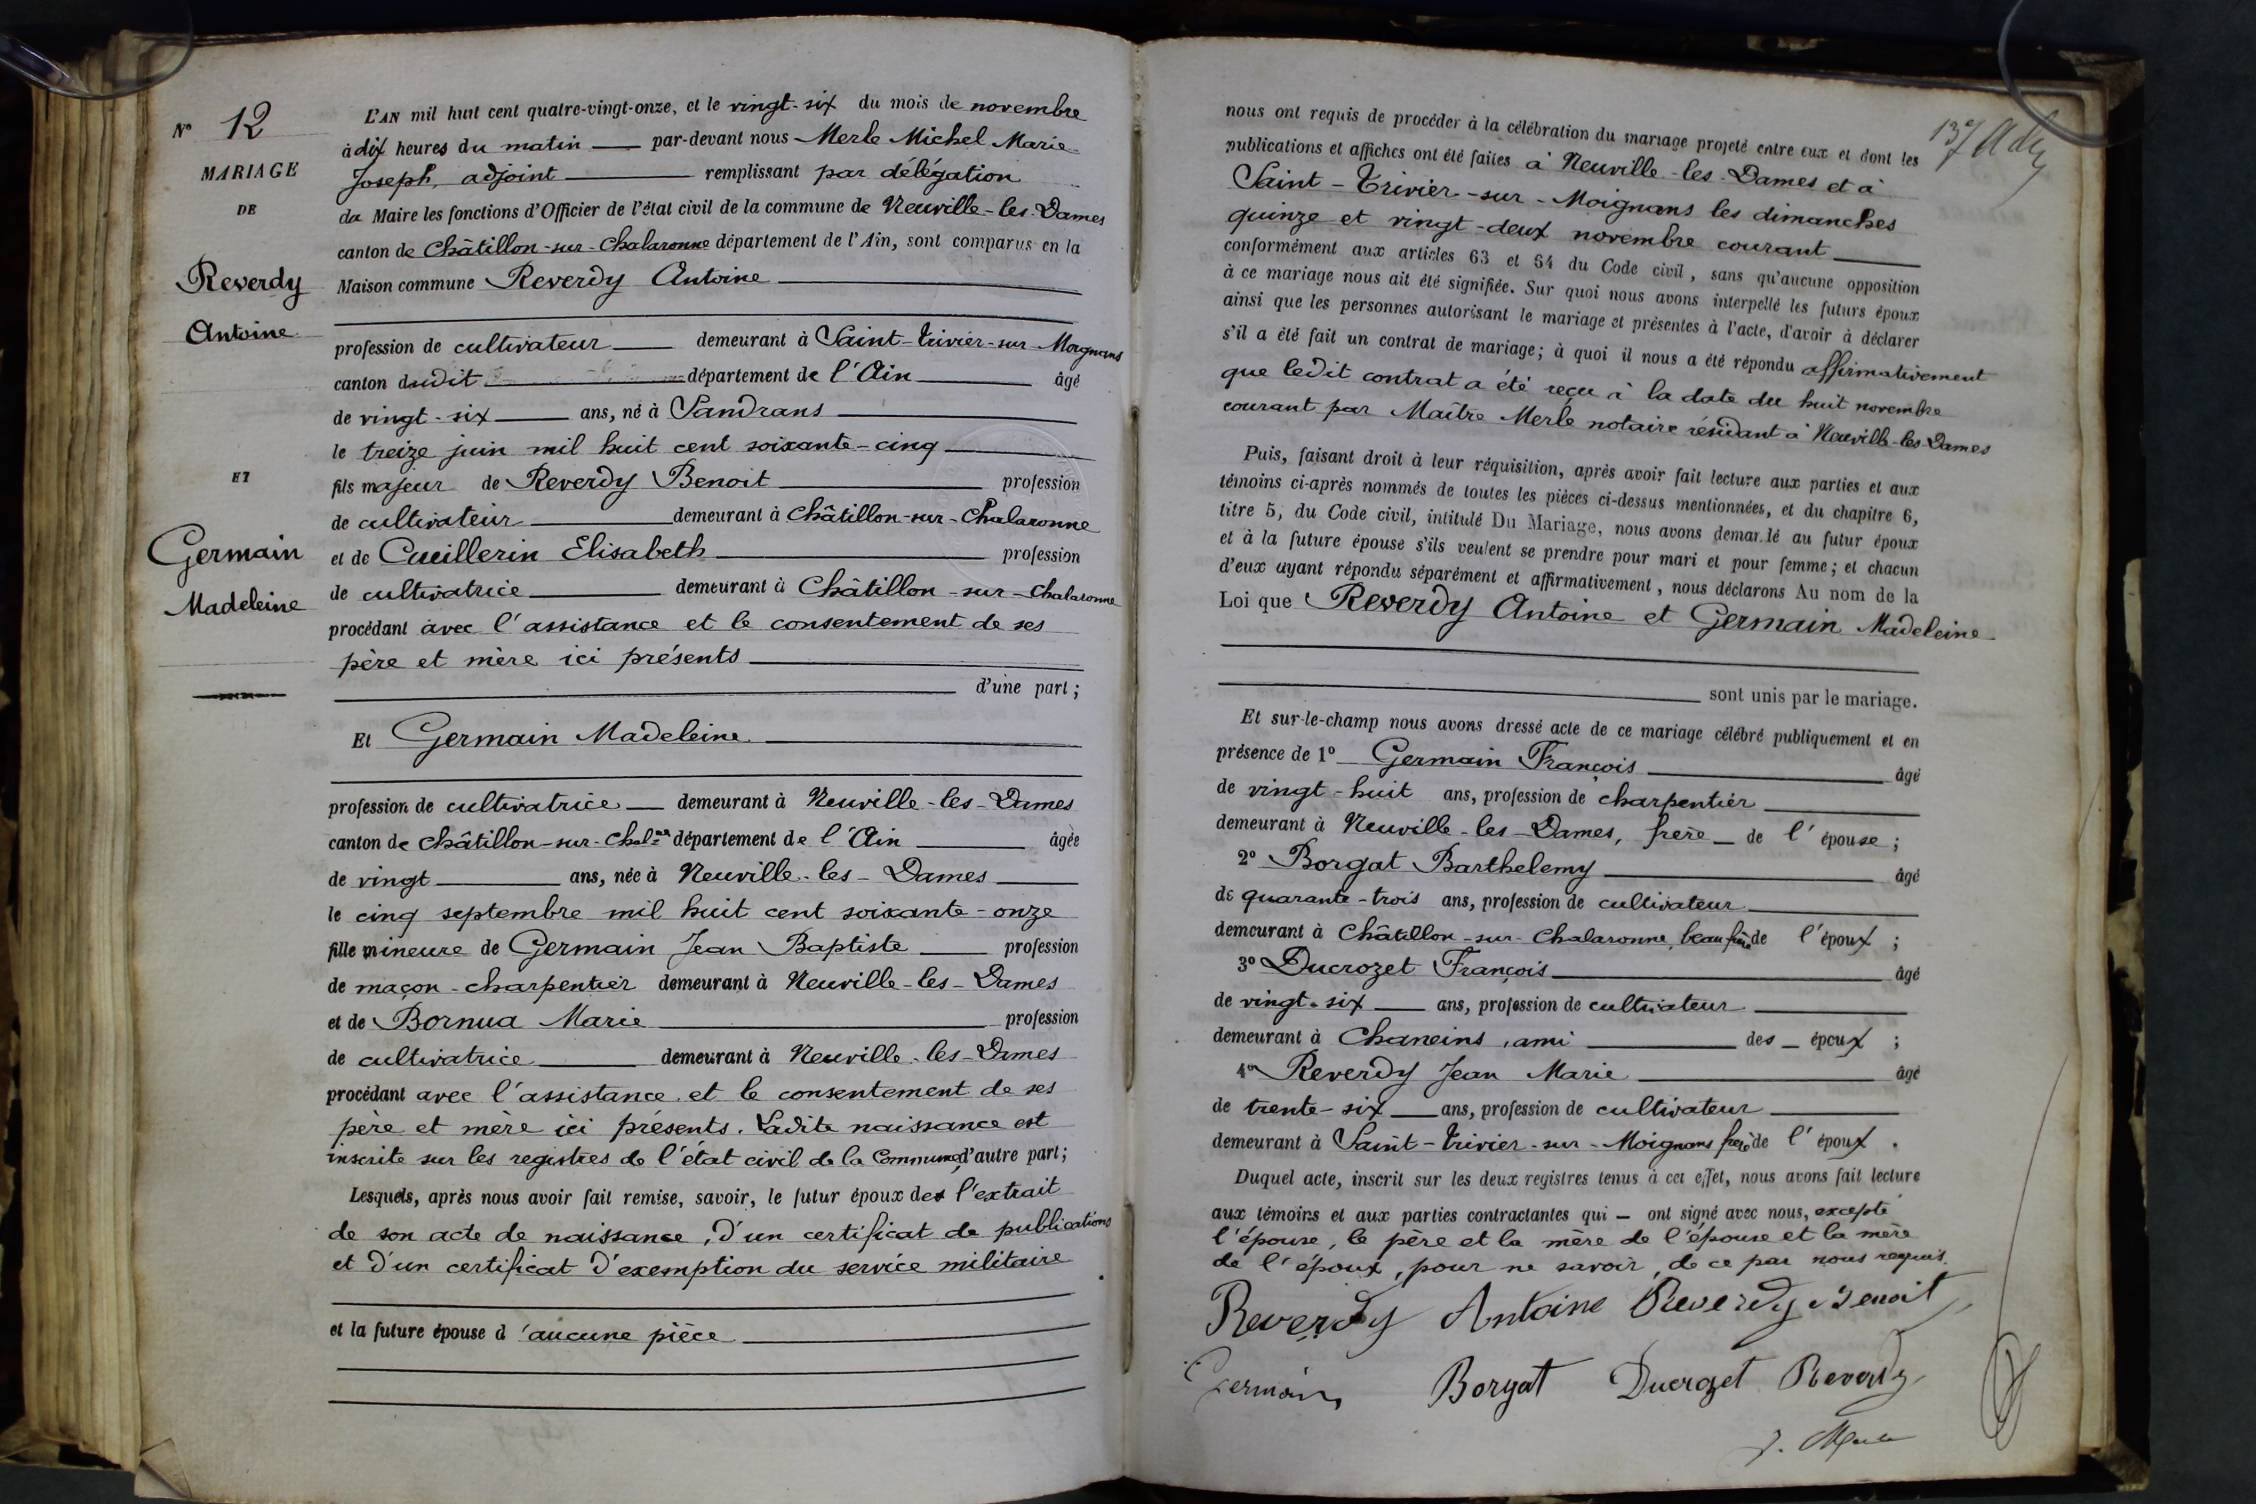 N° 12
MARIAGE
DE
Reverdy
Antoine
ET
Germain
Madeleine
L'AN mil huit cent quatre-vingt-onze, et le vingt-six du mois de novembre
à dix heures du matin par-devant nous Merle Michel Marie
Joseph, adjoint remplissant par délégation
du Maire les fonctions d'Officier de l'état civil de la commune de Neuville-les-Dames
canton de Châtillon-sur-Chalaronne département de l'Ain, sont comparus en la
Maison commune Reverdy Antoine
profession de cultivateur demeurant à Saint-Trivier-sur-Moignans
canton dudit département de l'Ain âgé
de vingt-six ans, né à Sandrans
le treize juin mil huit cent soixante-cinq
fils majeur de Reverdy Benoit profession
de cultivateur demeurant à Châtillon-sur-Chalaronne
et de Cueillerin Elisabeth profession
de cultivatrice demeurant à Châtillon-sur-Chalaronne
procédant avec l'assistance et le consentement de ses
père et mère ici présents
d'une part ;
Et Germain Madeleine
profession de cultivatrice demeurant à Neuville-les-Dames
canton de Châtillon-sur-Chalne département de l'Ain âgée
de vingt ans, née à Neuville-les-Dames
le cinq septembre mil huit cent soixante-onze
fille mineure de Germain Jean Baptiste profession
de maçon-charpentier demeurant à Neuville-les-Dames
et de Bornua Marie profession
de cultivatrice demeurant à Neuville-les-Dames
procédant avec l'assistance et le consentement de ses
père et mère ici présents. Ladite naissance est
inscrite sur les registres de l'état civil de la Commune, d'autre part ;
Lesquels, après nous avoir fait remise, savoir, le futur époux de l'extrait
de son acte de naissance, d'un certificat de publications
et d'un certificat d'exemption du service militaire
et la future épouse d'aucune pièce
137
nous ont requis de procéder à la célébration du mariage projeté entre eux et dont les
publications et affiches ont été faites à Neuville-les-Dames et à
Saint-Trivier-sur-Moignans les dimanches
quinze et vingt-deux novembre courant
conformément aux articles 63 et 64 du Code civil, sans qu'aucune opposition
à ce mariage nous ait été signifiée. Sur quoi nous avons interpellé les futurs époux
ainsi que les personnes autorisant le mariage et présentes à l'acte, d'avoir à déclarer
s'il a été fait un contrat de mariage ; à quoi il nous a été répondu affirmativement
que ledit contrat a été reçu à la date du huit novembre
courant par Maître Merle notaire résidant à Neuville-les-Dames
Puis, faisant droit à leur réquisition, après avoir fait lecture aux parties et aux
témoins ci-après nommés de toutes les pièces ci-dessus mentionnées, et du chapitre 6,
titre 5, du Code civil, intitulé Du Mariage, nous avons demandé au futur époux
et à la future épouse s'ils veulent se prendre pour mari et pour femme ; et chacun
d'eux ayant répondu séparément et affirmativement, nous déclarons Au nom de la
Loi que Reverdy Antoine et Germain Madeleine
sont unis par le mariage.
Et sur-le-champ nous avons dressé acte de ce mariage célébré publiquement et en
présence de 1° Germain François âgé
de vingt-huit ans, profession de charpentier
demeurant à Neuville-les-Dames, frère de l'épouse ;
2° Borgat Barthelemy âgé
de quarante-trois ans, profession de cultivateur
demeurant à Châtillon-sur-Chalaronne, beau frère de l'époux ;
3° Ducrozet François âgé
de vingt-six ans, profession de cultivateur
demeurant à Chaneins, ami des époux ;
4° Reverdy Jean Marie âgé
de trente-six ans, profession de cultivateur
demeurant à Saint-Trivier-sur-Moignans frère de l'époux.
Duquel acte, inscrit sur les deux registres tenus à cet effet, nous avons fait lecture
aux témoins et aux parties contractantes qui ont signé avec nous, excepté
l'épouse, le père et la mère de l'épouse et la mère
de l'époux, pour ne savoir, de ce par nous requis.
Reverdy Antoine Reverdy Benoit
Germain Borgat Ducrozet Reverdy
J. Merle